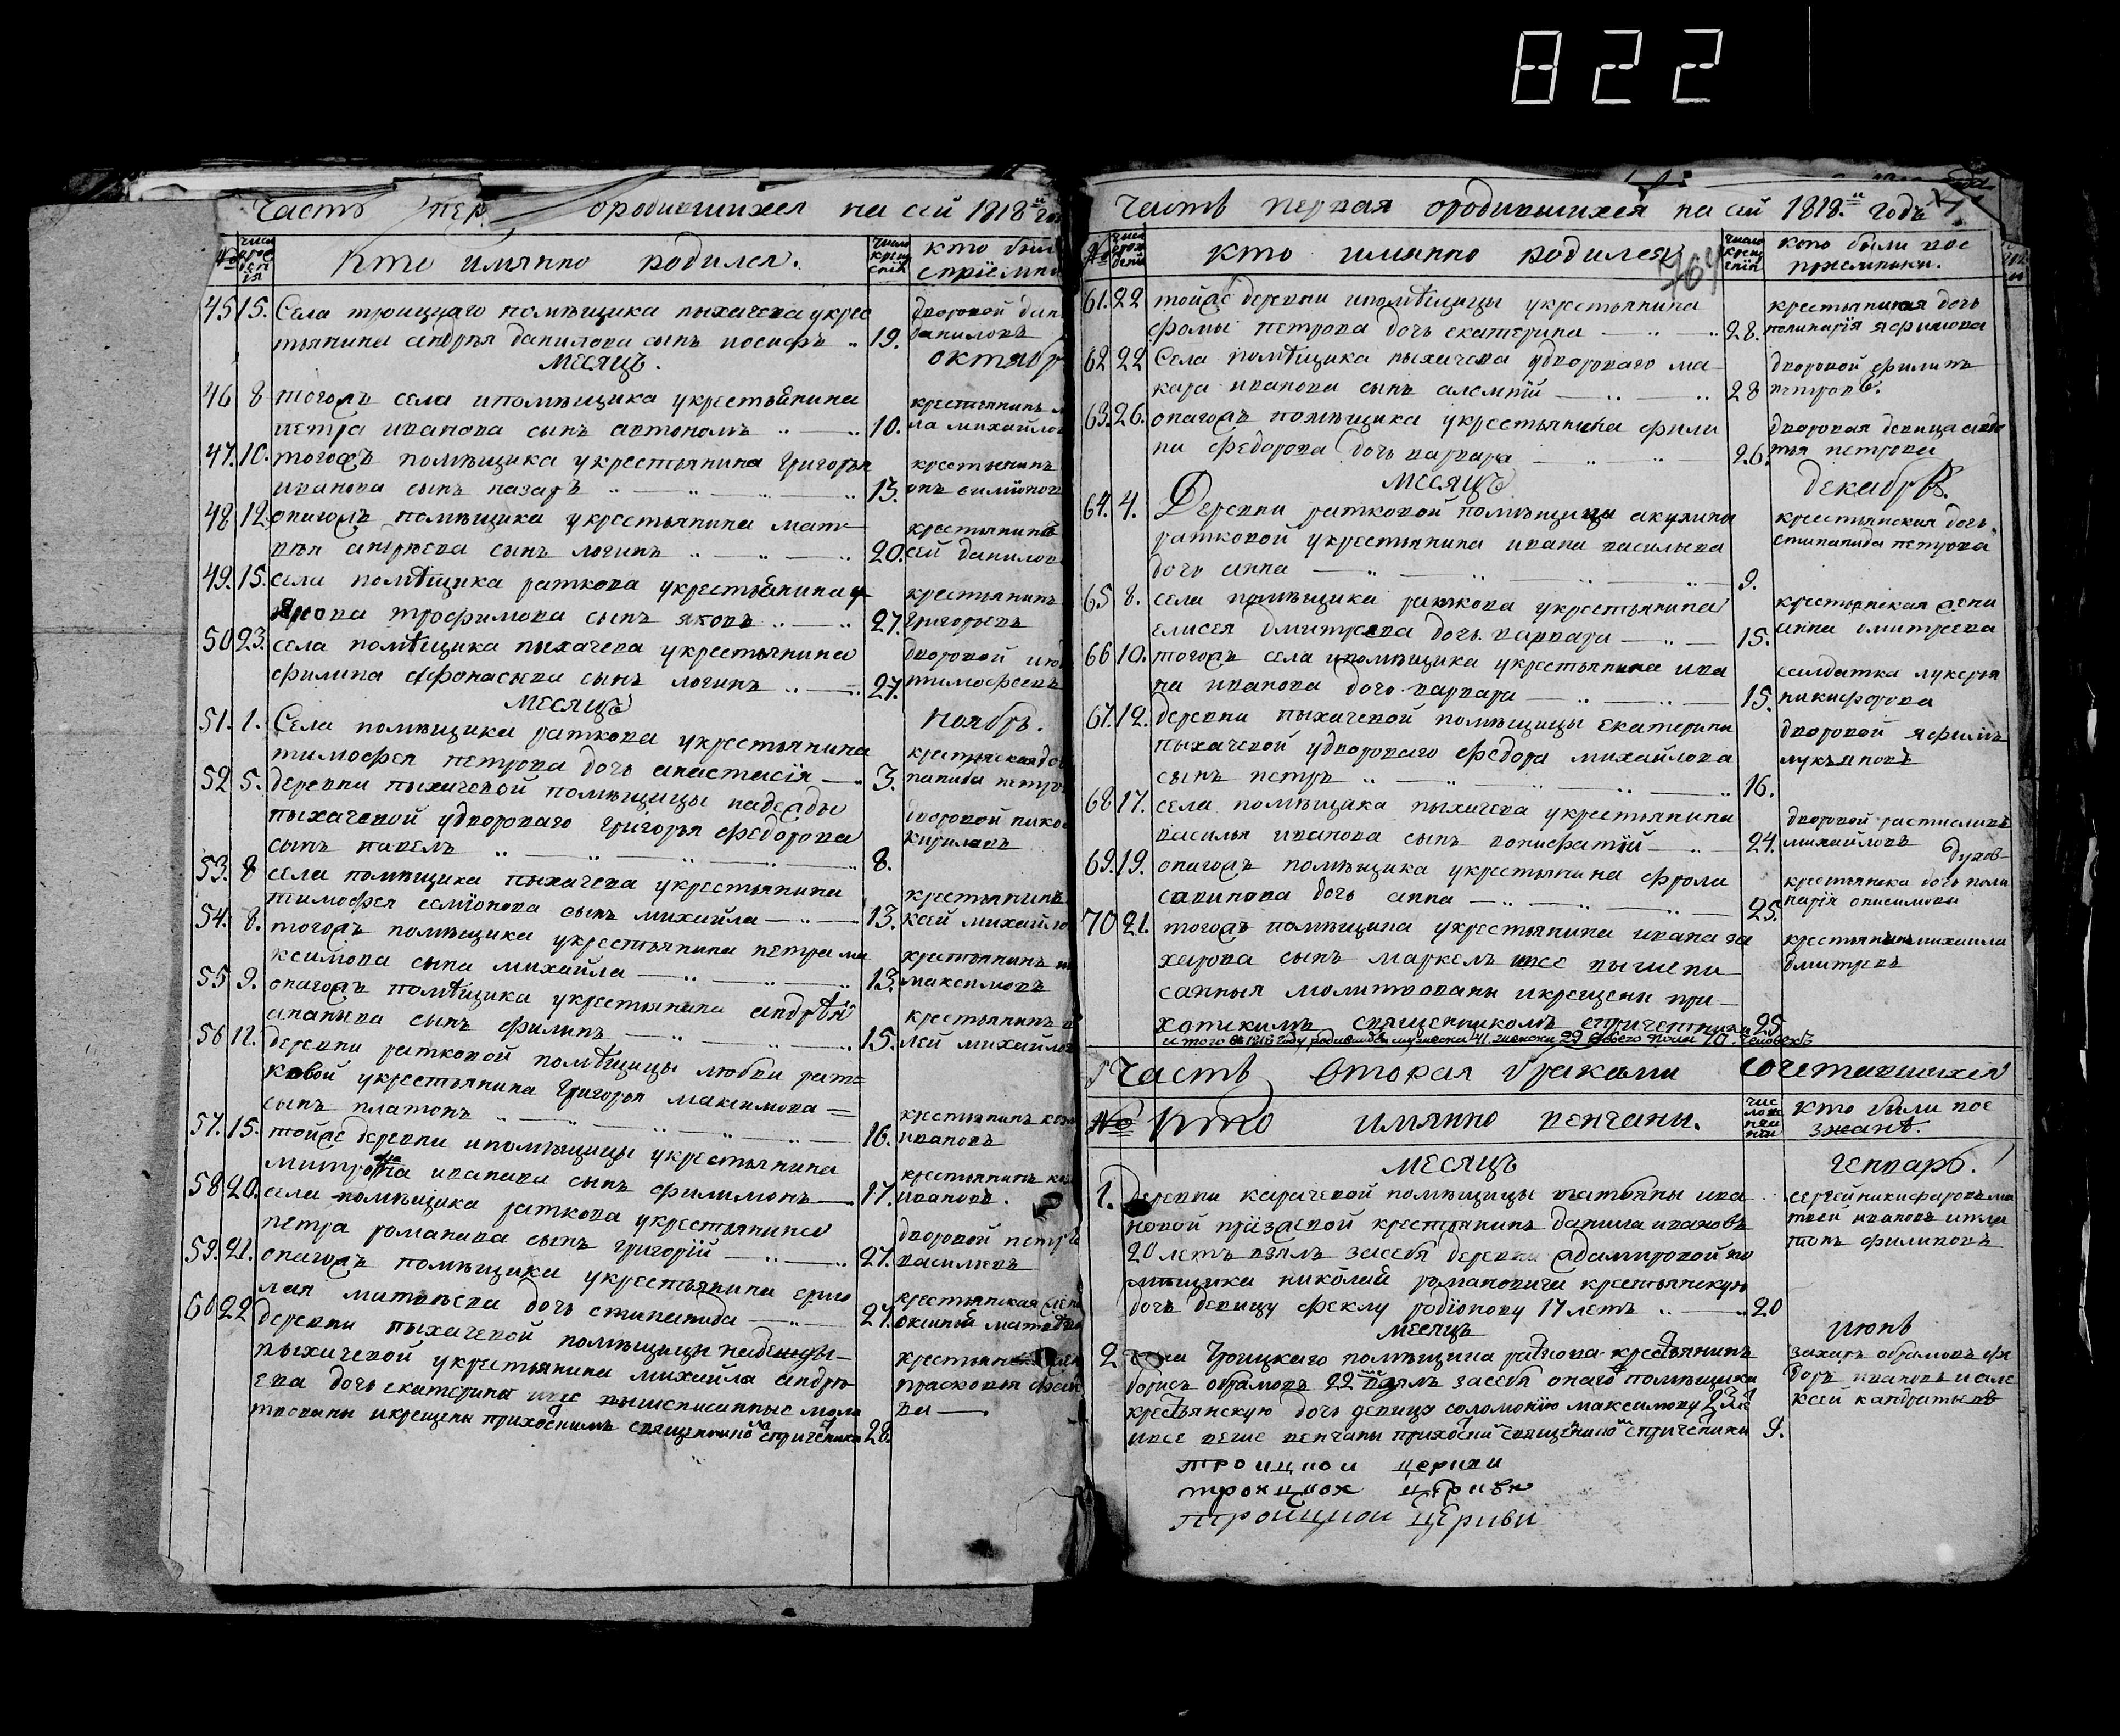 822
Часть пер ородившихся на сей 1818й го
№ числ рож дені я
Кто имянно родился.
число крещ енія
кто был
спріемни
45 15. Села троицкаго помѣщика пыхачева укрес
тьянина андрея данилова сынъ иосифъ 19.
дворовой дан
данилов
месяцъ.
октябр
46 8 тогожъ села ипомѣщика укрестьянина
петра иванова сынъ автономъ 10.
крестьянинъ
ла михайлов
47. 10. тогожъ помѣщика укрестьянина григорья
иванова сынъ назаръ 13.
крестьянинъ
48 12. онагожъ помѣщика укрестьянина мат
вея андреева сынъ логинъ 20.
крестьянинъ
сей данилов
49. 15. села помѣщика раткова укрестьянина
трофимова сынъ яковъ 27.
крестьянинъ
григорьевъ
50 23. села помѣщика пыхачева укрестьянина
филипа афонасьева сынъ логинъ 27.
дворовой
тимофеевъ
месяцъ
ноябрь.
51. 1. Села помѣщика раткова укрестьянина
тимофея петрова дочь анастасія 3.
крестьянская до
панида петро
52 5. деревни пыхачевой помѣщицы надежды
пыхачевой удворового григорья федорова
сынъ павелъ 8.
дворовой нико
кириловъ
53. 8 села помѣщика пыхачева укрестьянина
тимофея семіонова сынъ михайла 13.
крестьянинъ
ксей михайло
54. 8. тогожъ помѣщика укрестьянина петра ма
ксимова сына михайла 13.
крестьянинъ
максимовъ
55 9. онагожъ помѣщика укрестьянина андрѣя
ананьева сынъ филипъ 15.
крестьянинъ
лей михайлов
56 11. деревни ратковой помѣщицы любви рат
ковой укрестьянина григорья максимова
сынъ платонъ 16.
крестьянинъ
ивановъ
57. 15. тойже деревни ипомѣщицы укрестьянина
митрофана иванова сынъ филимонъ 17.
крестьянинъ
ивановъ.
58 20. села помѣщика раткова укрестьянина
петра романова сынъ григорій 27.
дворовой петръ
васильевъ
59. 21. онагожъ помѣщика укрестьянина ермо
лая матвеева дочь степанида 27.
крестьянская
60 22 деревни пыхачевой помѣщицы надежды
пыхачевой укрестьянина михайла андре
ева дочь екатерина ивсе вышеписанные моли
твованы икрещены приходскимъ священникомъ спричетники 28.
прасковья
ва
Часть первая ородившихся на сей 1818.й годъ
764
№
кто имянно родился
число крещ енія
кто были вос
пріемники.
61. 22 тойже деревни ипомѣщицы укрестьянина
фомы петрова дочь екатерина 28.
крестьянская дочь
62 22 Села помѣщика пыхачева удвороваго ма
кара иванова сынъ алемпій 28
дворовой филипъ
петровъ.
63. 26. онагожъ помѣщика укрестьянина фили
пи федорова дочь варвара 26.
дворовая девица
петрова
месяцъ
декабрь.
64. 4. Деревни ратковой помѣщицы акулины
ратковой укрестьянина ивана васильева
дочь анна 9.
крестьянская дочь
степанида петрова
65 8. села помѣщика раткова укрестьянина
елисея дмитрева дочь варвара 15.
крестьянская жена
анна дмитрева
66 10. тогожъ села ипомѣщика укрестьянина ива
на иванова дочь варвара 15.
салдатка лукерья
никифорова
67. 12. деревни пыхачевой помѣщицы екатерины
пыхачевой удвороваго федора михайлова
сынъ петръ 16.
дворовой яфимъ
лукьяновъ
68 17. села помѣщика пыхачева укрестьянина
василья иванова сынъ вонифатій 24.
дворовой растиславъ
михайловъ
69. 19. онагожъ помѣщика укрестьянина фрола
савинова дочь анна 25.
крестьянска дочь пели
нарія онисимова
70 21. тогожъ помѣщика укрестьянина ивана за
харова сынъ маркелъ ивсе вышепи
санныя молитвованы икрещены при
хотскимъ священникомъ спричетники 25
крестьянинъ михаила
дмитревъ
итого въ 1818 году родившихся мужеска 41 женска 29 обоего пола 70 человекъ
Часть вторая браками сочетавшихся
№ кто имянно венчаны.
чис ло ве нча нія
кто были пое
зжанѣ.
месяцъ
генварь.
1. Деревни карачевой помѣщицы татьяны ива
новой крестьянинъ данила ивановъ
20 летъ взялъ засебя деревни адамировой по
мѣщика николая романовича крестьянскую
дочь девицу феклу родіонову 17 летъ 20
сергей никифоровъ ма
твей ивановъ ипла
тонъ филиповъ
месяцъ
июнь
2 села Троицкаго помѣщика раткова крестьянинъ
борисъ обрамовъ 22 взялъ засебя онаго помѣщика
крестьянскую дочь девицу соломонию максимову 23
ивсе выше венчаны приходски священико спричетники 9.
захаръ обрамовъ фе
доръ ивановъ иале
ксей кандратьевъ
троицкои церкви
троицкои церкви
троицкои церкви